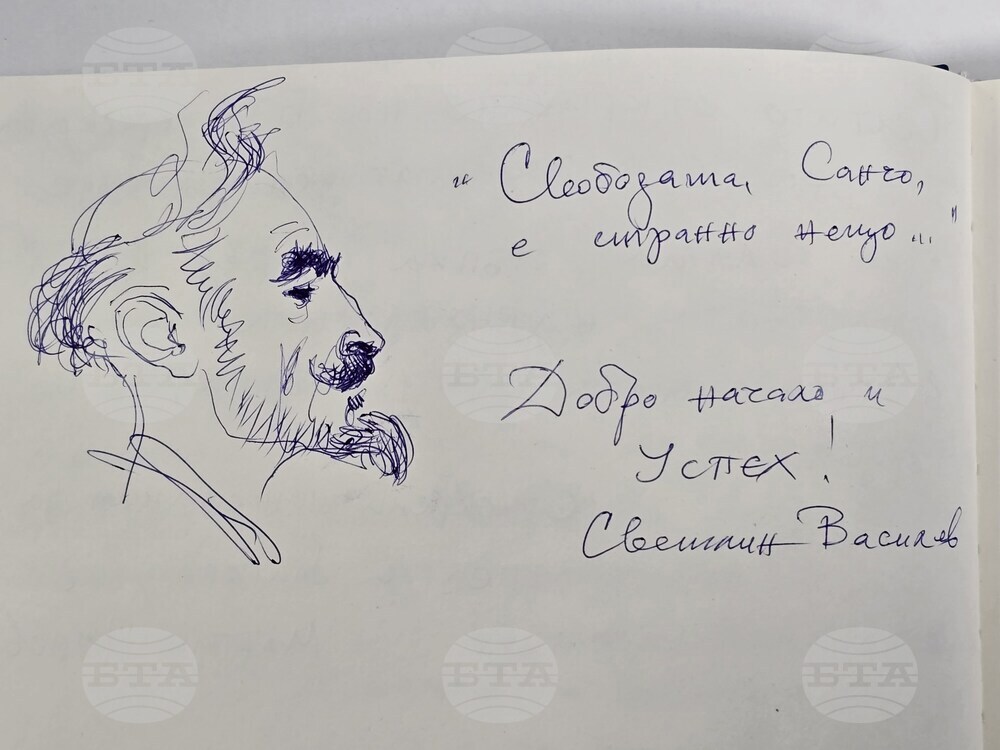 "Свободата, Санчо,
е странно нещо..."
Добро начало и
Успех!
Светлин Василев
БТА
БТА
БТА
БТА
БТА
БТА